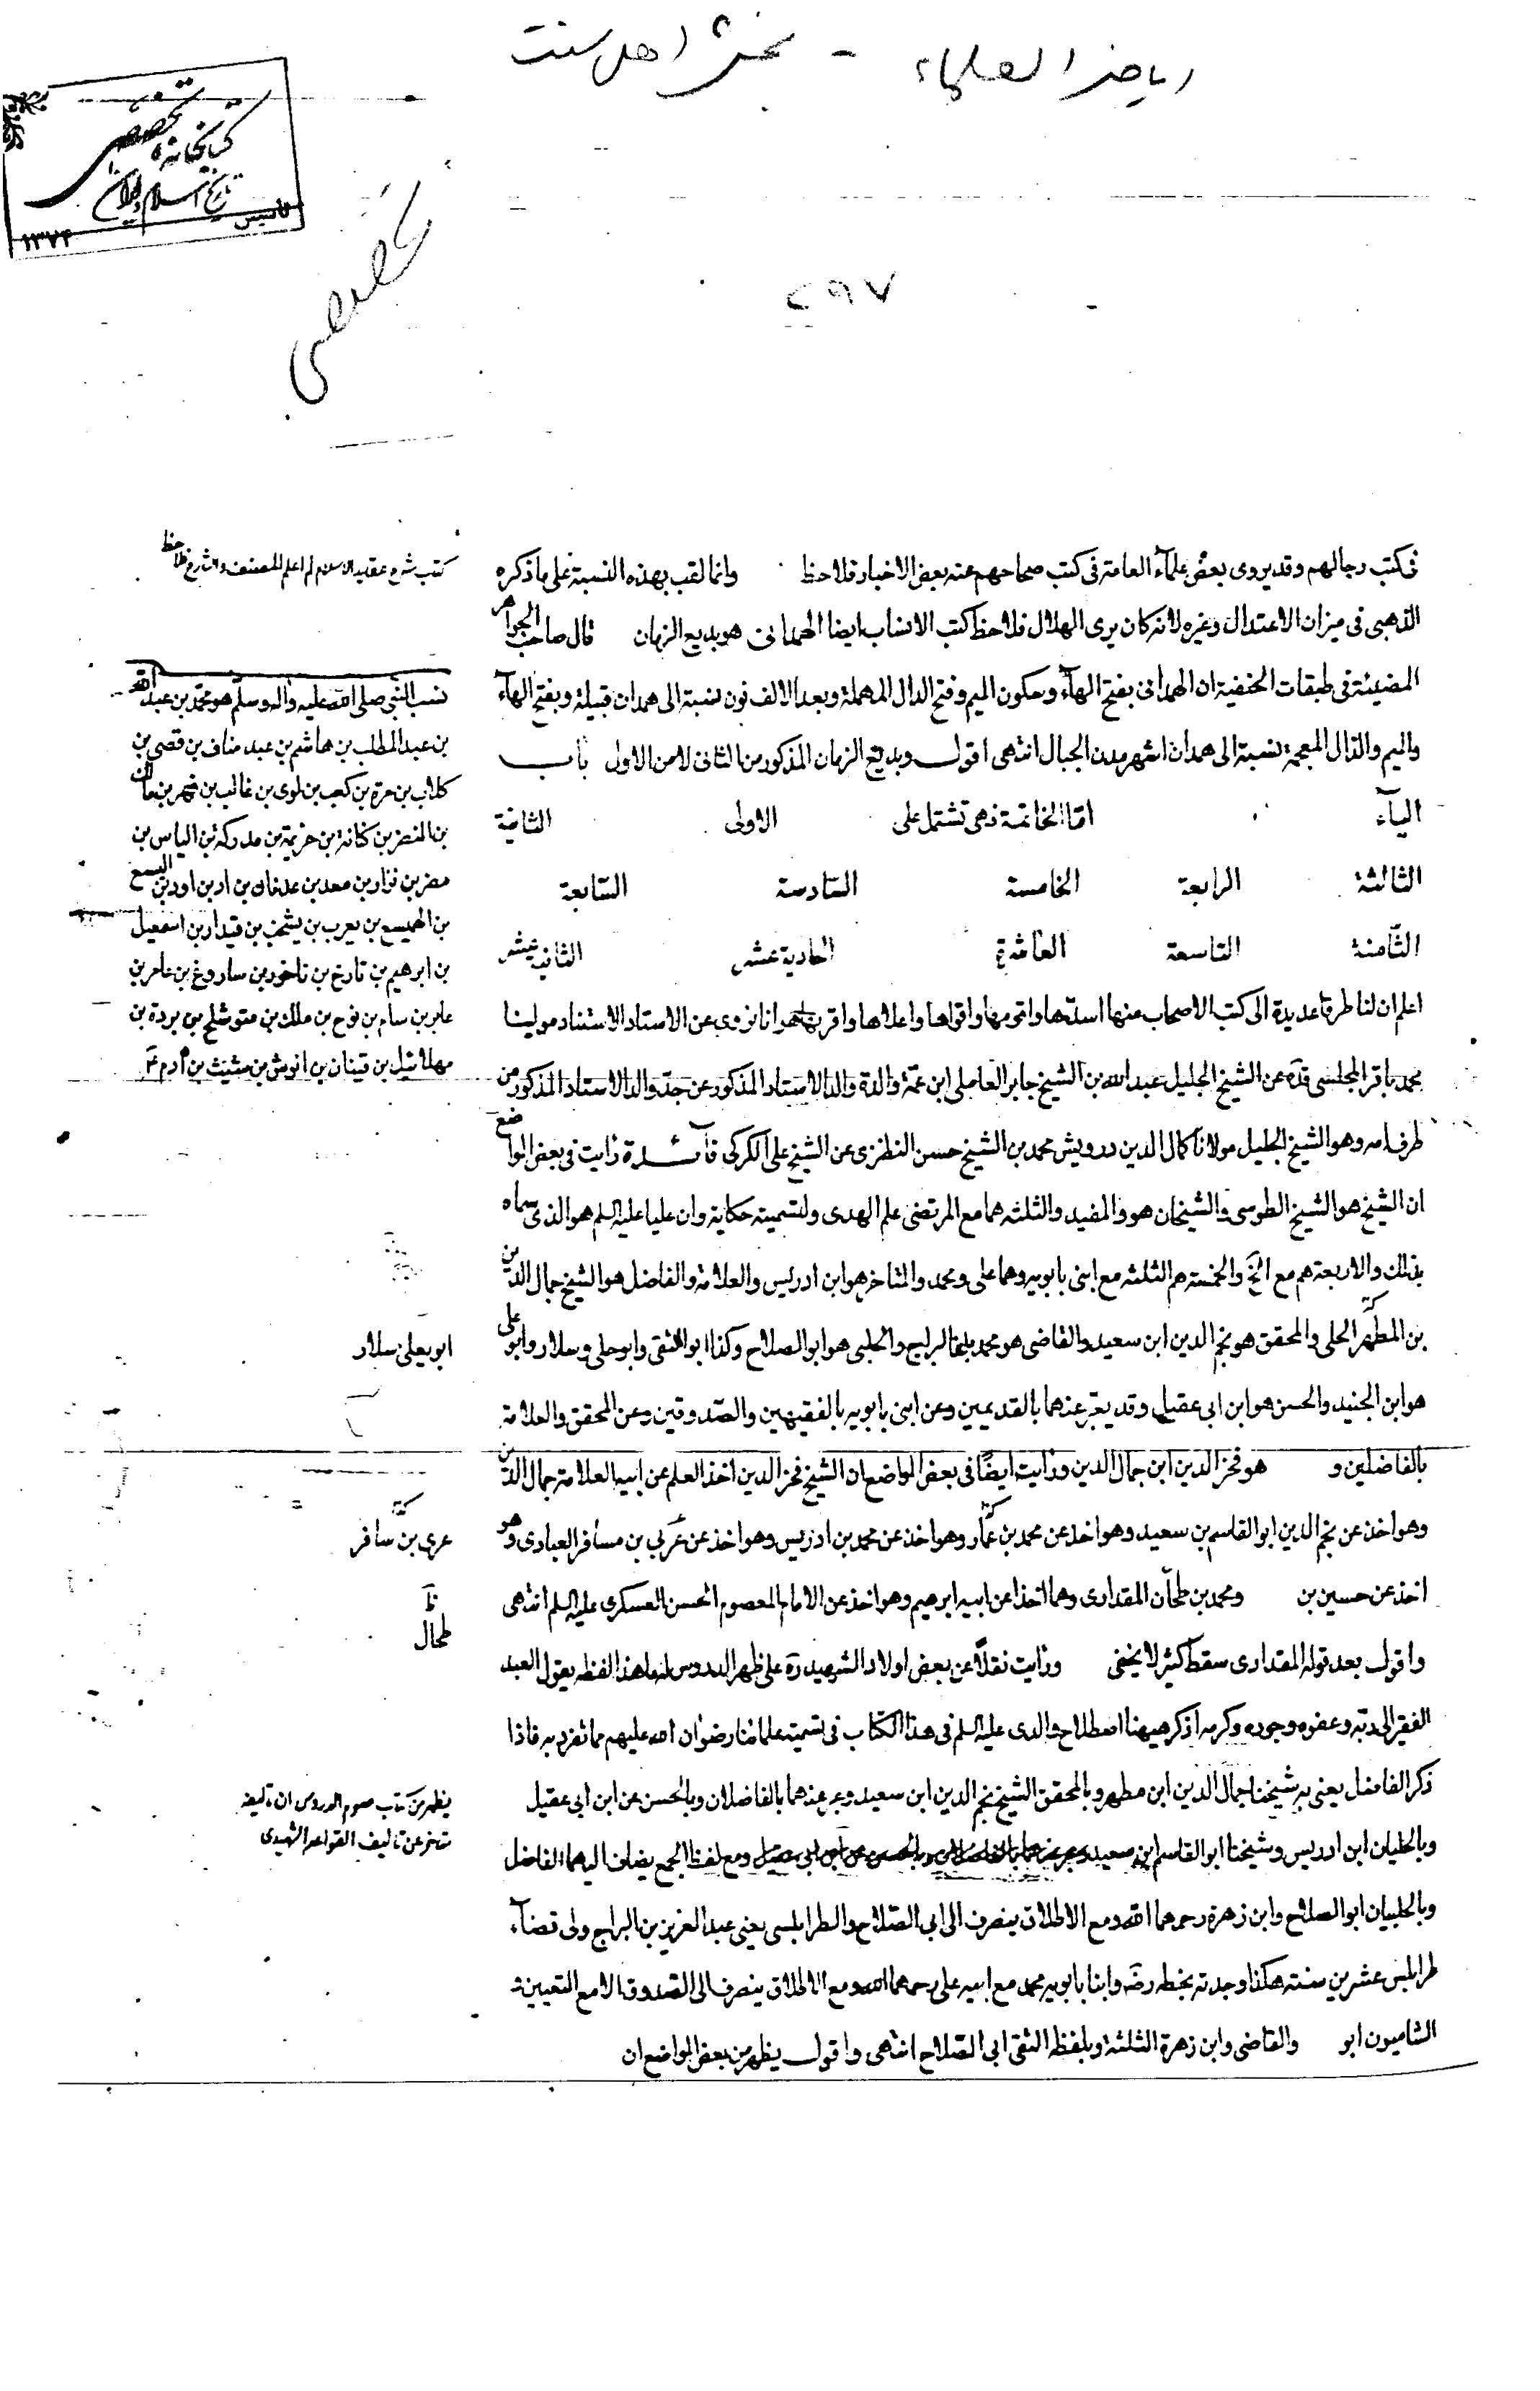 ریاض العلماء - بخش اهل سنت
کتابخانه تخصصی
تاریخ اسلام و ایران
تاسیس ۱۳۷۴
تخصصی
۲۹۷
فى كتب رجالهم وقد يروى بعض علمآء العامة فى كتب صحاحهم عنه بعض الاخبار فلاحظ وانما لقب بهذه النسبة على ما ذكره
الذهبى فى ميزان الاعتدال وغيره لانه كان يرى الهلال فلاحظ كتب الانساب ايضا الهمدانى هو بديع الزمان قال صاحب الجواهر
المضيئة فى طبقات الحنفية ان الهمدانى بفتح الهآء وسكون الميم وفتح الدال المهملة وبعد الالف نون نسبة الى همدان قبيلة وبفتح الهآء
والميم والذال المعجمة نسبة الى همدان اشهر مدن الجبال انتهى اقول وبديع الزمان المذكور من الثانى لا من الاول باب
اليآء امّا الخاتمة فهى تشتمل على الاولى الثانية
الثالثة الرابعة الخامسة السّادسة السّابعة
الثّامنة التاسعة العاشرة الحادية عشر الثانية عشر
اعلم ان لنا طرقا عديدة الى كتب الاصحاب منها اسدّها واقومها واقواها واعلاها واقربها هو انا نروى عن الاستاد الاستناد مولينا
محمد باقر المجلسى قده عن الشيخ الجليل عبد الله بن الشيخ جابر العاملى ابن عمّة والدة والد الاستاد المذكور عن جدّ والد الاستاد المذكور من
طرف امه وهو الشيخ الجليل مولانا كمال الدين درويش محمد بن الشيخ حسن النطنزى عن الشيخ على الكركى فآئدة رايت فى بعض المواضع
ان الشيخ هو الشيخ الطوسى والشيخان هو والمفيد والثلثه هما مع المرتضى علم الهدى ولتسميته حكاية وان عليا عليه السلم هو الذى سماه
بذلك والاربعة هم مع الخ والخمسة هم الثلثه مع ابنى بابويه وهما على ومحمد والمتاخر هو ابن ادريس والعلامة والفاضل هو الشيخ جمال الدين
بن المطهر الحلى والمحقق هو نجم الدين ابن سعيد والقاضى هو محمد بن البراج والحلبى هو ابو الصلاح وكذا ابو التقى وابو على وسلار وابو على
هو ابن الجنيد والحسن هو ابن ابى عقيل وقد يعبّر عنهما بالقديمين وعن ابنى بابويه بالفقيهين والصّدوقين وعن المحقق والعلامة
بالفاضلين و هو فخر الدين ابن جمال الدين ورايت ايضًا فى بعض المواضع ان الشيخ فخر الدين اخذ العلم عن ابيه العلامة جمال الدين
وهو اخذ عن نجم الدين ابو القاسم بن سعيد وهو اخذ عن محمد بن نمّار وهو اخذ عن محمد بن ادريس وهو اخذ عن عربى بن مسافر العبادى وهو
اخذ عن حسين بن ومحمد بن طحّان المقدادى وهما اخذا عن ابيه ابرهيم وهو اخذ عن الامام المعصوم الحسن العسكرى عليه السلم انتهى
واقول بعد قوله المقدادى سقط كثير لا يخفى ورايت نقلًا عن بعض اولاد الشهيد ره على ظهر الدروس له ما هذا لفظه يقول العبد
الفقير الى ربّه وعفوه وجوده وكرمه اذكر هيهنا اصطلاح والدى عليه السلم فى هذا الكتاب فى تسمية علمائنا رضوان الله عليهم مما تفرد به فاذا
ذكر الفاضل يعنى به شيخنا جمال الدين ابن مطهر وبالمحقق الشيخ نجم الدين ابن سعيد وعبر عنهما بالفاضلان وبالحسن عن ابن ابى عقيل
وبالحليان ابن ادريس وشيخنا ابو القاسم ابن سعيد ومع لفظ الجمع يضاف اليهما الفاضل
وبالحلبيان ابو الصلاح وابن زهرة رحمهما الله ومع الاطلاق ينصرف الى ابى الصّلاح والطرابلسى يعنى عبد العزيز بن البراج ولى قضآء
طرابلس عشرين سنة هكذا وجدته بخطه رضه وابنا بابويه محمد مع ابيه على رحمهما الله ومع الاطلاق ينصرف الى الصّدوق الا مع التعيين
الشاميون ابو والقاضى وابن زهرة الثلثة وبلفظ التقى ابى الصّلاح انتهى واقول يظهر من بعض المواضع ان
كتب شرح عقايد الاسلام لم اعلم المصنف والشارح فلاحظ
نسب النبى صلى الله عليه واله وسلّم هو محمّد بن عبد الله
بن عبد المطلب بن هاشم بن عبد مناف بن قصى بن
كلاب بن مرة بن كعب بن لوى بن غالب بن فهر بن مالك
بن النضر بن كنانة بن خزيمة بن مدركة بن الياس بن
مضر بن نزار بن معد بن عدنان بن اد بن اود بن اليسع
بن الهميسع بن يعرب بن يشخب بن قيدار بن اسمعيل
بن ابرهيم بن تارخ بن ناخور بن ساروغ بن عامر بن
عابر بن سام بن نوح بن ملك بن متوشلح بن بردة بن
مهلائيل بن قينان بن انوش بن شيث بن ادم ع
ابو يعلى سلار
عربى بن سافر
ظ
طحال
يظهر من كتاب صوم الدروس ان تاليفه
متاخر عن تاليف القواعد الشهيدى